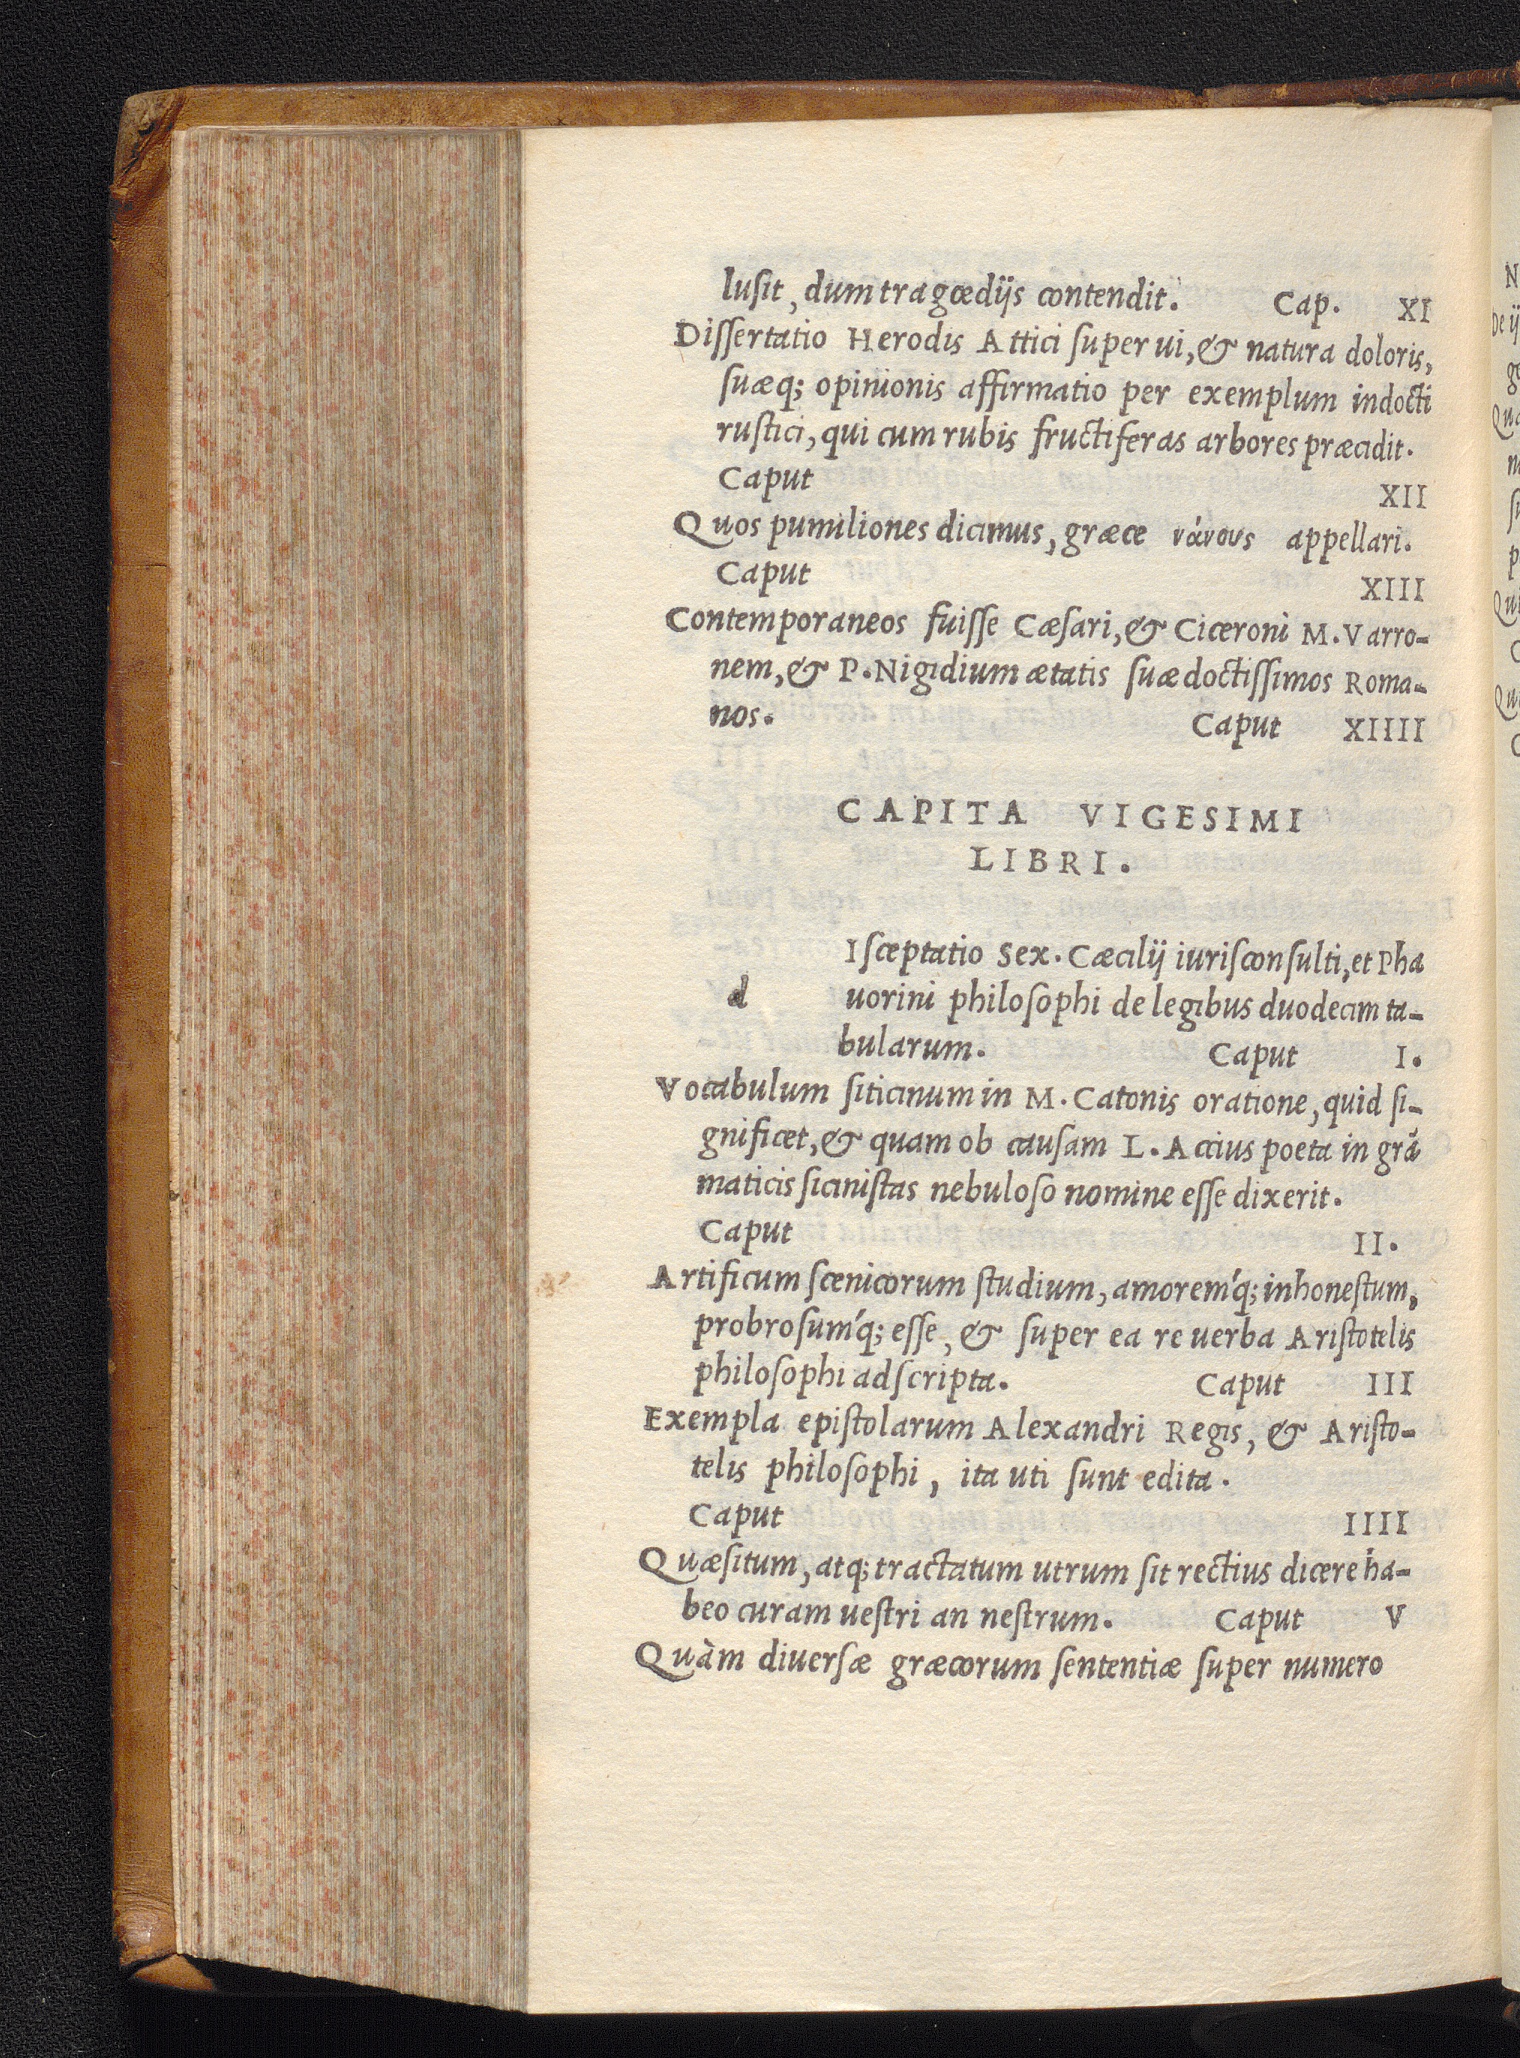 lusit, dum tragœdijs contendit. Cap. XI
Dissertatio Herodis Attici super ui, & natura doloris,
suæq; opinionis affirmatio per exemplum indocti
rustici, qui cum rubis fructiferas arbores præcidit.
Caput XII
Quos pumiliones dicimus, græce νάνους appellari.
Caput XIII
Contemporaneos fuisse Cæsari, & Ciceroni M. Varro-
nem, & P. Nigidium ætatis suæ doctissimos Roma-
nos. Caput XIIII
CAPITA VIGESIMI
LIBRI.
d Isceptatio Sex. Cæcilij iurisconsulti, et Pha
uorini philosophi de legibus duodecim ta-
bularum. Caput I.
Vocabulum siticinum in M. Catonis oratione, quid si-
gnificet, & quam ob causam L. Accius poeta in grã
maticis sicinistas nebuloso nomine esse dixerit.
Caput II.
Artificum scenicorum studium, amorem'q; inhonestum,
probrosum'q; esse, & super ea re uerba Aristotelis
philosophi adscripta. Caput III
Exempla epistolarum Alexandri Regis, & Aristo-
telis philosophi, ita uti sunt edita.
Caput IIII
Quæsitum, atq; tractatum utrum sit rectius dicere ha-
beo curam uestri an nestrum. Caput V
Quàm diuersæ græcorum sententiæ super numero